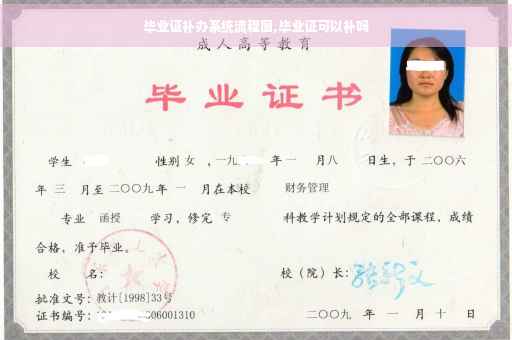 毕业证补办系统流程图,毕业证可以补吗
成人高等教育
毕业证书
学生 性别 女 ，一九 年一 月八 日生，于二〇〇六
年 三 月至二〇〇九年 一 月在本校 财务管理
专业 函授 学习，修完 专 科教学计划规定的全部课程，成绩
合格，准予毕业。
校 名： 校（院）长：
批准文号：教计[1998]33号
证书编号： 006001310 二〇〇九 年 一 月 十 日